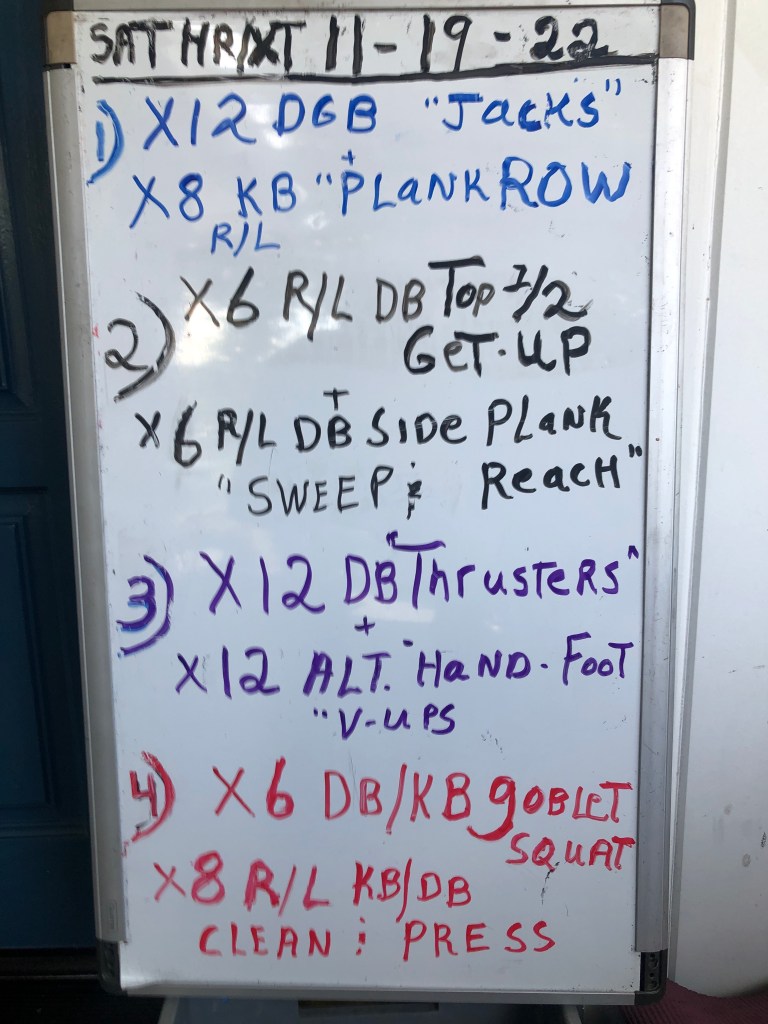 SAT HR/XT 11-19-22
1) X12 DGB "Jacks"
+
X8 KB "PLANK ROW
R/L
2) X6 R/L DB TOP 1/2
GeT-UP
+
X6 R/L DB SIDe PLANK
"SWEEP & ReacH"
3) X12 DB "ThrusTeRS"
+
X12 ALT. "HaND-FOOT
"V-UPS
4) X6 DB/KB gOBLeT
SQUAT
X8 R/L KB/DB
CLEAN & PRESS